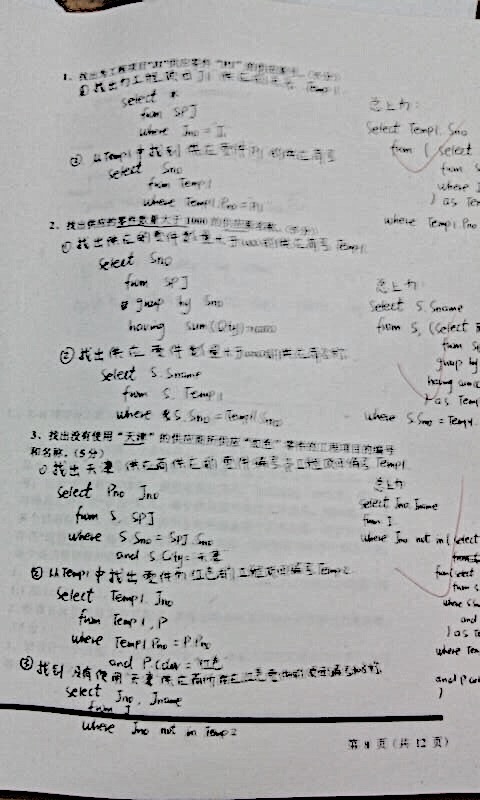 1、找出为工程项目"J1"供应零件"P1"的供应商号。(5分)
① 找出为工程项目J1供应的 Temp1.
select *
from SPJ
where Jno = J1
② 从Temp1中找到供应零件P1的供应商号
select Sno
from Temp1
where Temp1.Pno = P1
总上为:
Select Temp1.Sno
from ( select
from S
where J
) as Tem
where Temp1.Pno
2、找出供应的零件数量大于1000的供应商名称。(5分)
① 找出供应的零件数量大于1000的供应商号Temp1.
select Sno
from SPJ
group by Sno
having sum(Qty)>1000
② 找出供应零件数量大于1000的供应商名称.
select S.Sname
from S, Temp1
where S.Sno = Temp1.Sno
总上为:
Select S.Sname
from S, (Select S
from SP
group by
having sum(
) as Temp
where S.Sno = Temp1.
3、找出没有使用"天津"的供应商所供应"红色"零件的工程项目的编号
和名称。(5分)
① 找出天津供应商供应的零件编号与工程项目编号Temp1.
select Pno Jno
from S, SPJ
where S.Sno = SPJ.Sno
and S.City = 天津
② 从Temp1中找出零件为红色的工程项目编号Temp2
Select Temp1.Jno
from Temp1, P
where Temp1.Pno = P.Pno
and P.Color = 红色
③ 找到没有使用天津供应商所供应红色零件的项目编号名称.
select Jno, Jname
from J
where Jno not in Temp2
总上为
select Jno, Jname
from J
where Jno not in ( select
from(select
from S
where S.Sn
and
) as Te
where Tem
and P.Col
)
第 8 页(共 12 页)